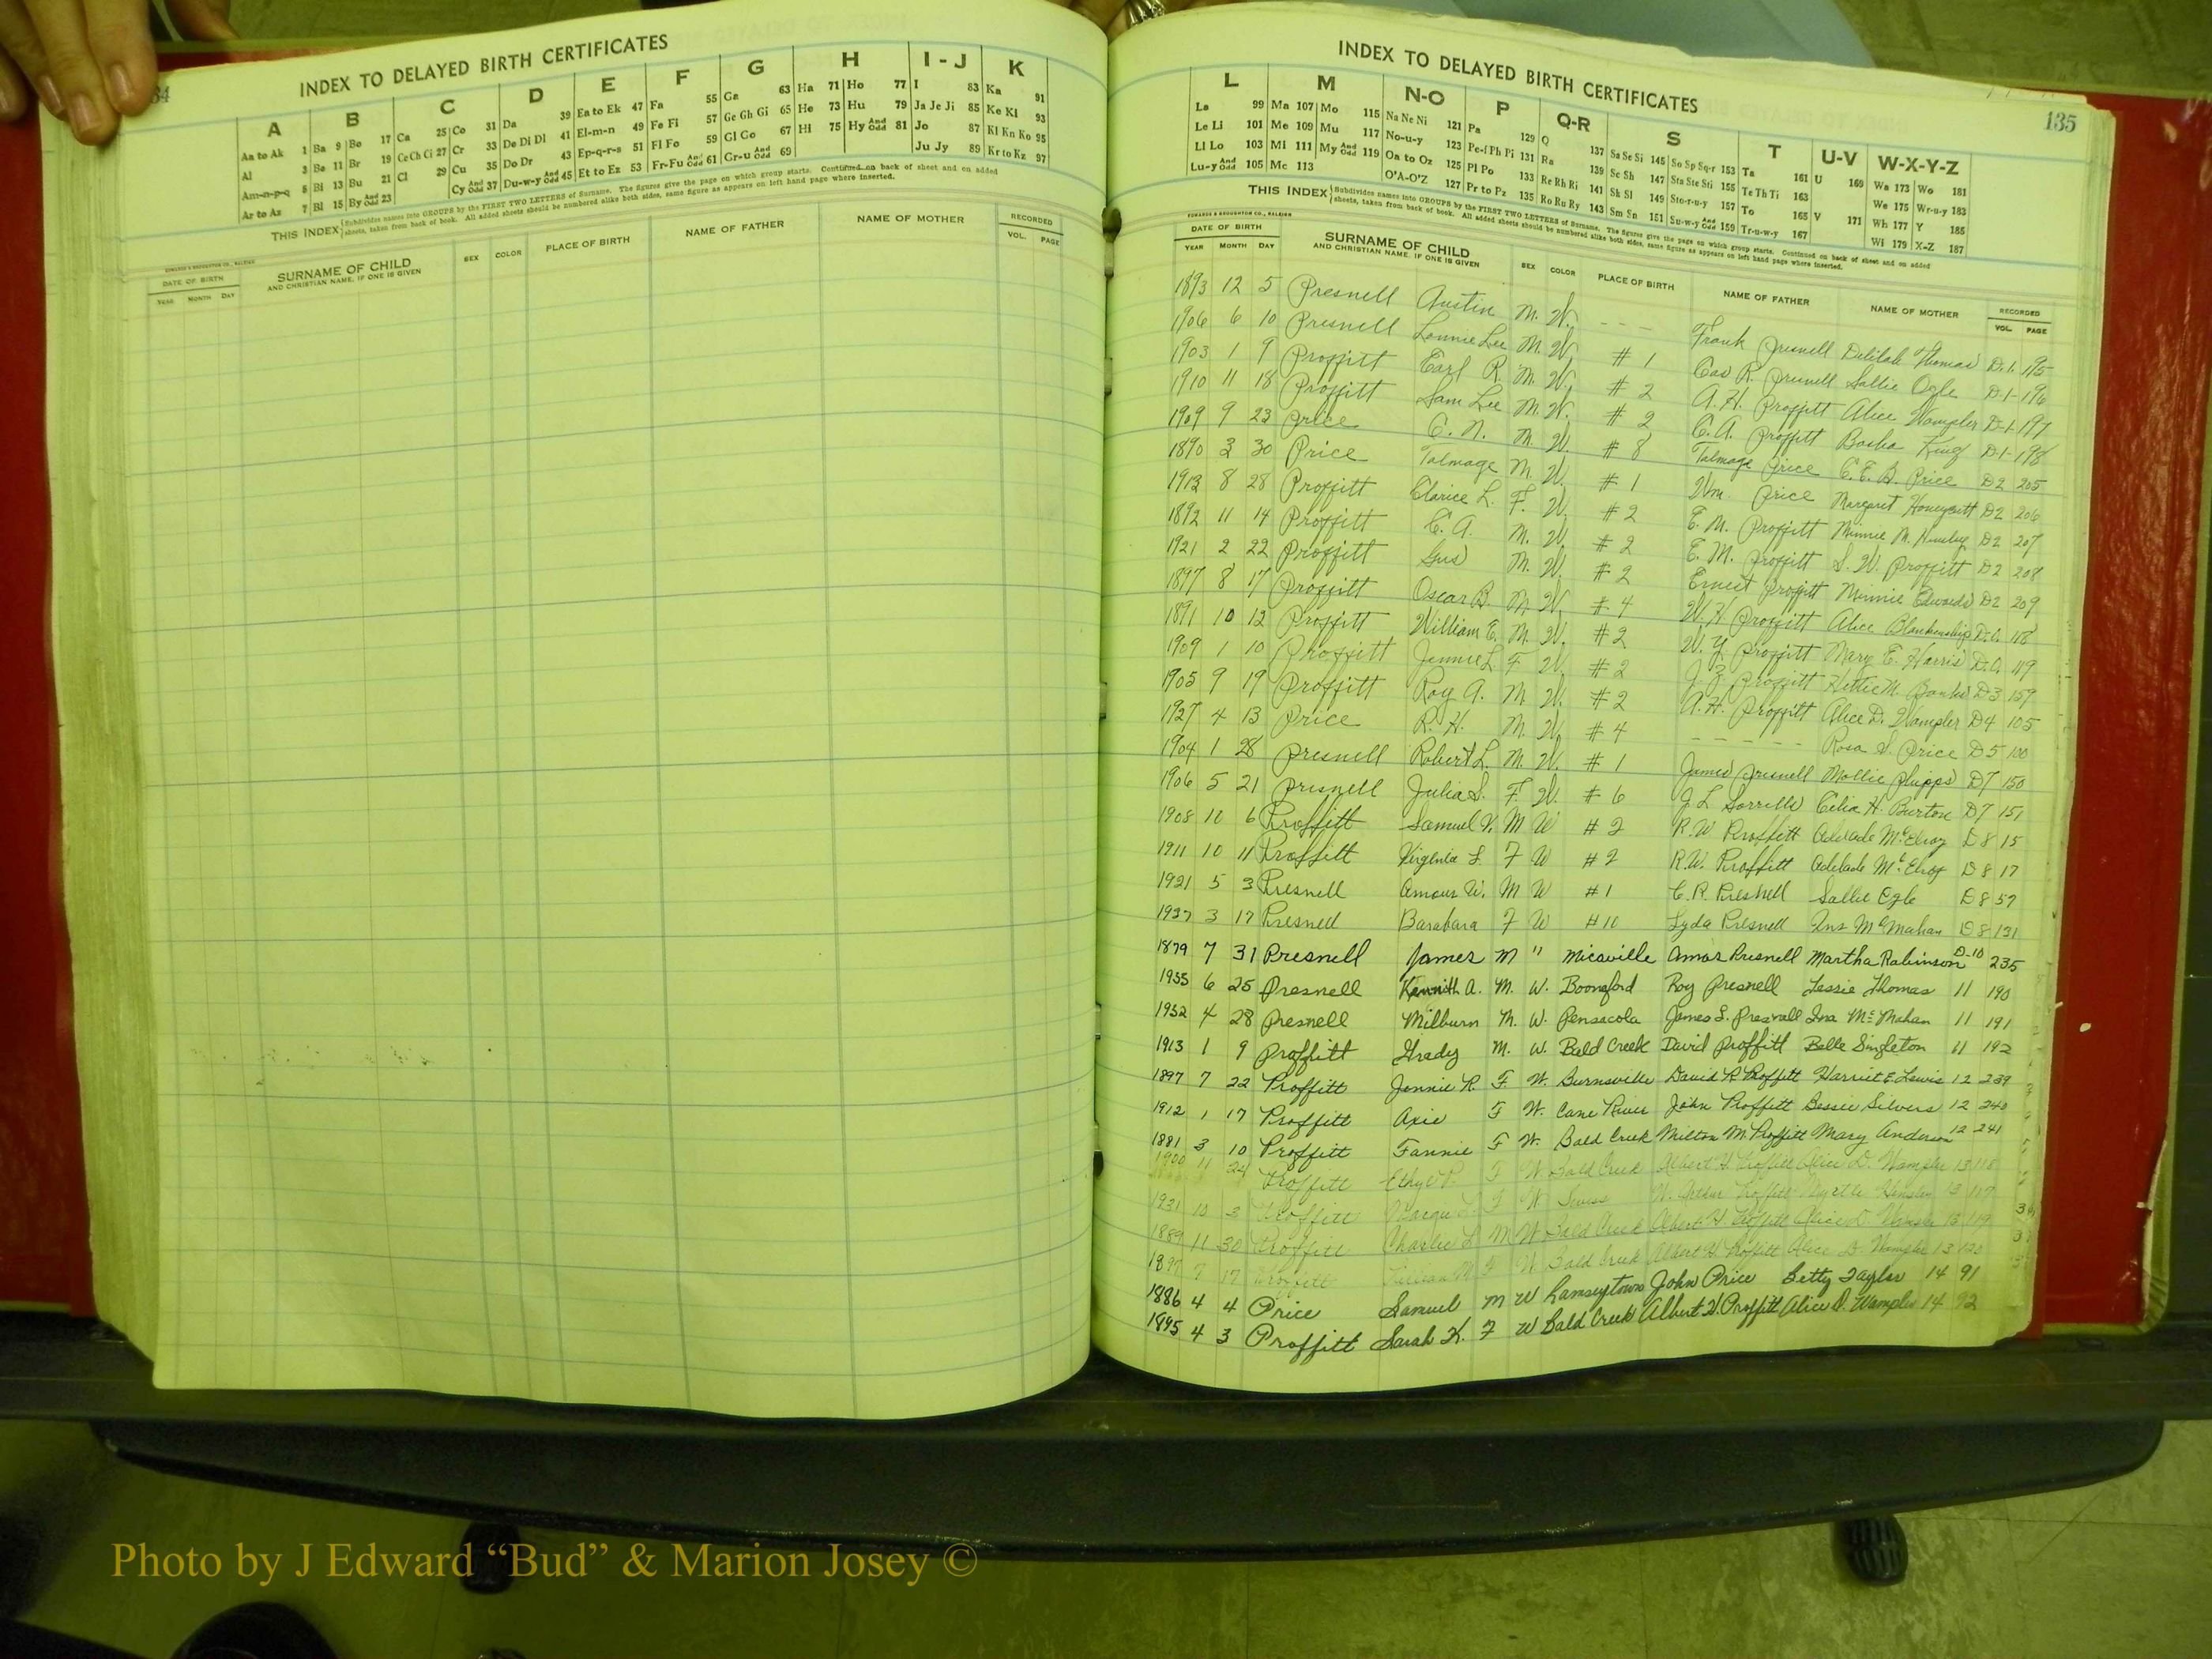 34
INDEX TO DELAYED BIRTH CERTIFICATES
A B C D E F G H I - J K
Aa to Ak 1 Ba 9 Bo 17 Ca 25 Co 31 Da 39 Ea to Ek 47 Fa 55 Ga 63 Ha 71 Ho 77 I 83 Ka 91
Al 3 Be 11 Br 19 Ce Ch Ci 27 Cr 33 De Di Dl 41 El-m-n 49 Fe Fi 57 Ge Gh Gi 65 He 73 Hu 79 Ja Je Ji 85 Ke Kl 93
Am-n-p-q 5 Bl 13 Bu 21 Cl 29 Cu 35 Do Dr 43 Ep-q-r-s 51 Fl Fo 59 Gl Go 67 Hi 75 Hy And Odd 81 Jo 87 Kl Kn Ko 95
Ar to Az 7 Bl 15 By And Odd 23 Cy And Odd 37 Du-w-y And Odd 45 Et to Ez 53 Fr-Fu And Odd 61 Gr-u And Odd 69 Ju Jy 89 Kr to Kz 97
THIS INDEX Subdivides names into GROUPS by the FIRST TWO LETTERS of Surname. The figures give the page on which group starts. Continued on back of sheet and on added
sheets, taken from back of book. All added sheets should be numbered alike both sides, same figure as appears on left hand page where inserted.
EDWARDS & BROUGHTON CO., RALEIGH
DATE OF BIRTH SURNAME OF CHILD SEX COLOR PLACE OF BIRTH NAME OF FATHER NAME OF MOTHER RECORDED
YEAR MONTH DAY AND CHRISTIAN NAME, IF ONE IS GIVEN VOL. PAGE
INDEX TO DELAYED BIRTH CERTIFICATES
135
L M N-O P Q-R S T U-V W-X-Y-Z
La 99 Ma 107 Mo 115 Na Ne Ni 121 Pa 129 Q 137 Sa Se Si 145 So Sp Sq-r 153 Ta 161 U 169 Wa 173 Wo 181
Le Li 101 Me 109 Mu 117 No-u-y 123 Pe-f Ph Pi 131 Ra 139 Sc Sh 147 Sta Ste Sti 155 Te Th Ti 163 We 175 Wr-u-y 183
Ll Lo 103 Mi 111 My And Odd 119 Oa to Oz 125 Pl Po 133 Re Rh Ri 141 Sk Sl 149 Sto-r-u-y 157 To 165 V 171 Wh 177 Y 185
Lu-y And Odd 105 Mc 113 O'A-O'Z 127 Pr to Pz 135 Ro Ru Ry 143 Sm Sn 151 Su-w-y And Odd 159 Tr-u-w-y 167 Wi 179 X-Z 187
THIS INDEX Subdivides names into GROUPS by the FIRST TWO LETTERS of Surname. The figures give the page on which group starts. Continued on back of sheet and on added
sheets, taken from back of book. All added sheets should be numbered alike both sides, same figure as appears on left hand page where inserted.
EDWARDS & BROUGHTON CO., RALEIGH
DATE OF BIRTH SURNAME OF CHILD SEX COLOR PLACE OF BIRTH NAME OF FATHER NAME OF MOTHER RECORDED
YEAR MONTH DAY AND CHRISTIAN NAME, IF ONE IS GIVEN VOL. PAGE
1893 12 5 Presnell Austin M. W. - - - Frank Presnell Delilah Thomas D.1. 195
1906 6 10 Presnell Lonnie Lee M. W. # 1 Cas R. Presnell Sallie Ogle D-1-196
1903 1 9 Proffitt Earl R. M. W. # 2 A. H. Proffitt Alice Wampler D-1-197
1910 11 18 Proffitt Sam Lee M. W. # 2 C. A. Proffitt King D-1-198
1909 9 23 Price C. N. M. W. # 8 Talmage Price C. E. B. Price D2 205
1890 3 30 Price Talmage M. W. # 1 Wm. Price Margaret Honeycutt D2 206
1913 8 28 Proffitt Clarice L. F. W. # 2 E. M. Proffitt Minnie M. D2 207
1892 11 14 Proffitt C. A. M. W. # 2 E. M. Proffitt S. W. Proffitt D2 208
1921 2 22 Proffitt Gus M. W. # 2 Ernest Proffitt Minnie Edwards D2 209
1897 8 17 Proffitt Oscar B. M. W. # 4 W. H. Proffitt Alice Blankenship 118
1891 10 12 Proffitt William E. M. W. # 2 W. Y. Proffitt Mary E. Harris 119
1909 1 10 Proffitt Jennie L. F W. # 2 Proffitt Hettie M. Banks D3 159
1905 9 19 Proffitt Roy A. M. W. # 2 A. H. Proffitt Alice D. Wampler D4 105
1927 4 13 Price R. H. M. W. # 4 - - - - - Rosa S. Price D5 100
1904 1 28 Presnell Robert L. M. W. # 1 James Presnell Mollie Phipps D7 150
1906 5 21 Presnell Julia S. F. W. # 6 J L Sorrells Celia H. Burton D7 151
1908 10 6 Proffitt Samuel V. M W # 2 R. W Proffitt Adelade McElroy D8 15
1911 10 11 Proffitt Virginia L. F W # 2 R. W. Proffitt Adelade McElroy D8 17
1921 5 3 Presnell Amous W. M W # 1 C. R. Presnell Sallie Ogle D8 57
1937 3 17 Presnell Barabara F W # 10 Lyda Presnell Ina McMahan D8 131
1879 7 31 Presnell James M " Micaville Amos Presnell Martha Robinson D-10 235
1935 6 25 Presnell Kennith A. M. W. Boonford Roy Presnell Lessie Thomas 11 190
1932 4 28 Presnell Milburn M. W. Pensacola James S. Presnell Ina McMahan 11 191
1913 1 9 Proffitt Grady M. W. Bald Creek David Proffitt Belle Singleton 11 192
1897 7 22 Proffitt Jennie R. F W. Burnsville David R Proffitt Harriet E Lewis 12 239
1912 1 17 Proffitt Axie F W. Cane River John Proffitt Bessie Silvers 12 240
1881 3 10 Proffitt Fannie F W. Bald Creek Milton M. Proffitt Mary Anderson 12 241
1900 11 24 Proffitt F W Bald Creek Albert H. Proffitt Alice D. Wampler 13 118
1931 10 3 Proffitt F W W. Arthur Proffitt Myrtle Hensley 13
1889 11 30 Proffitt Charlie L M W Bald Creek Albert H. Proffitt Alice D. Wampler 13 119
1897 7 17 Proffitt F W Bald Creek Albert H Proffitt Alice D. Wampler 13 120
1886 4 4 Price Samuel M W Ramseytown John Price Betty Taylor 14 91
1895 4 3 Proffitt Sarah K. F W Bald Creek Albert H. Proffitt Alice D. Wampler 14 92
Photo by J Edward “Bud” & Marion Josey ©